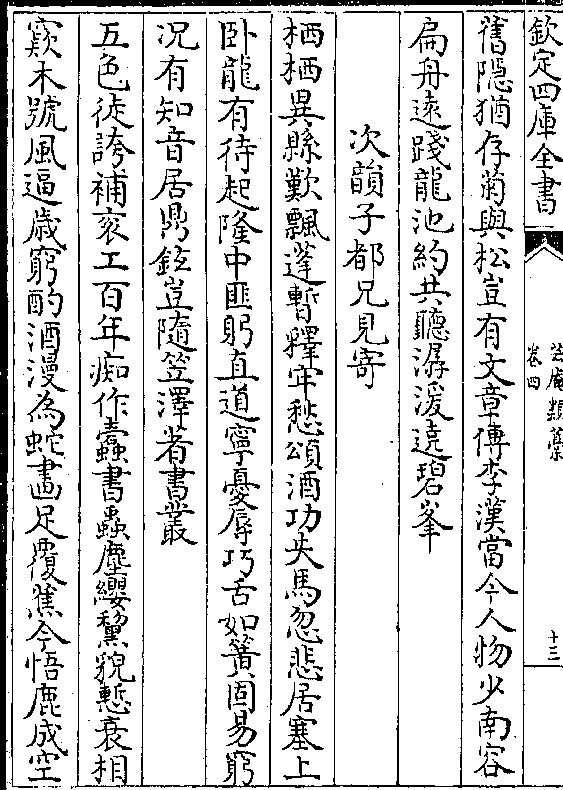 欽定四庫全書
卷四
十三
舊隱猶存菊與松豈有文章傳李漢當今人物少南容
扁舟遠踐龍池約共聽潺湲遶碧峯
次韻子都兄見寄
栖栖異縣歎飄蓬暫釋牢愁頌酒功失馬忽悲居塞上
卧龍有待起隆中匪躬直道寧憂辱巧舌如簧固易窮
况有知音居鼎鉉豈隨笠澤著書叢
五色徒誇補衮工百年痴作蠹書蟲塵纓黧貌慙衰相
窾木號風逼歲窮酌酒漫為蛇畫足覆蕉今悟鹿成空